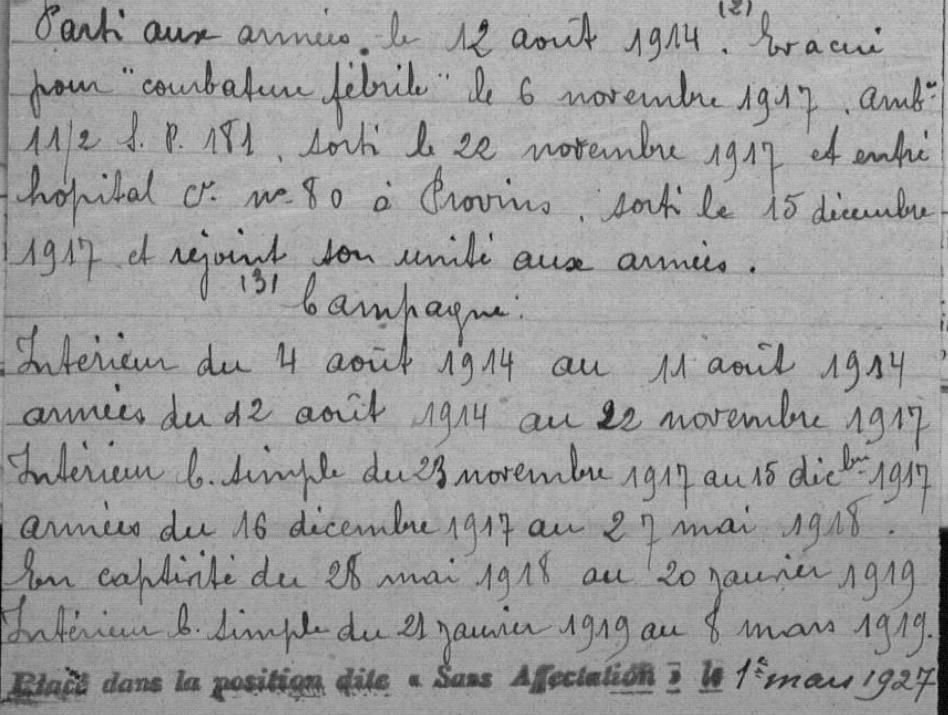 Parti aux armées. le 12 août 1914. (2) Evacué
pour "courbature fébrile" le 6 novembre 1917. amb.ce
11/2 S. P. 181, sorti le 22 novembre 1917 et entré
hôpital C. n° 80 à Provins, sorti le 15 décembre
1917 et rejoint son unité aux armées.
(3) Campagne:
Intérieur du 4 août 1914 au 11 août 1914
armées du 12 août 1914 au 22 novembre 1917
Intérieur C. simple du 23 novembre 1917 au 15 décbre 1917
armées du 16 décembre 1917 au 27 mai 1918.
En captivité du 28 mai 1918 au 20 janvier 1919
Intérieur C. simple du 21 janvier 1919 au 8 mars 1919.
Placé dans la position dite « Sans Affectation » le 1er mars 1927